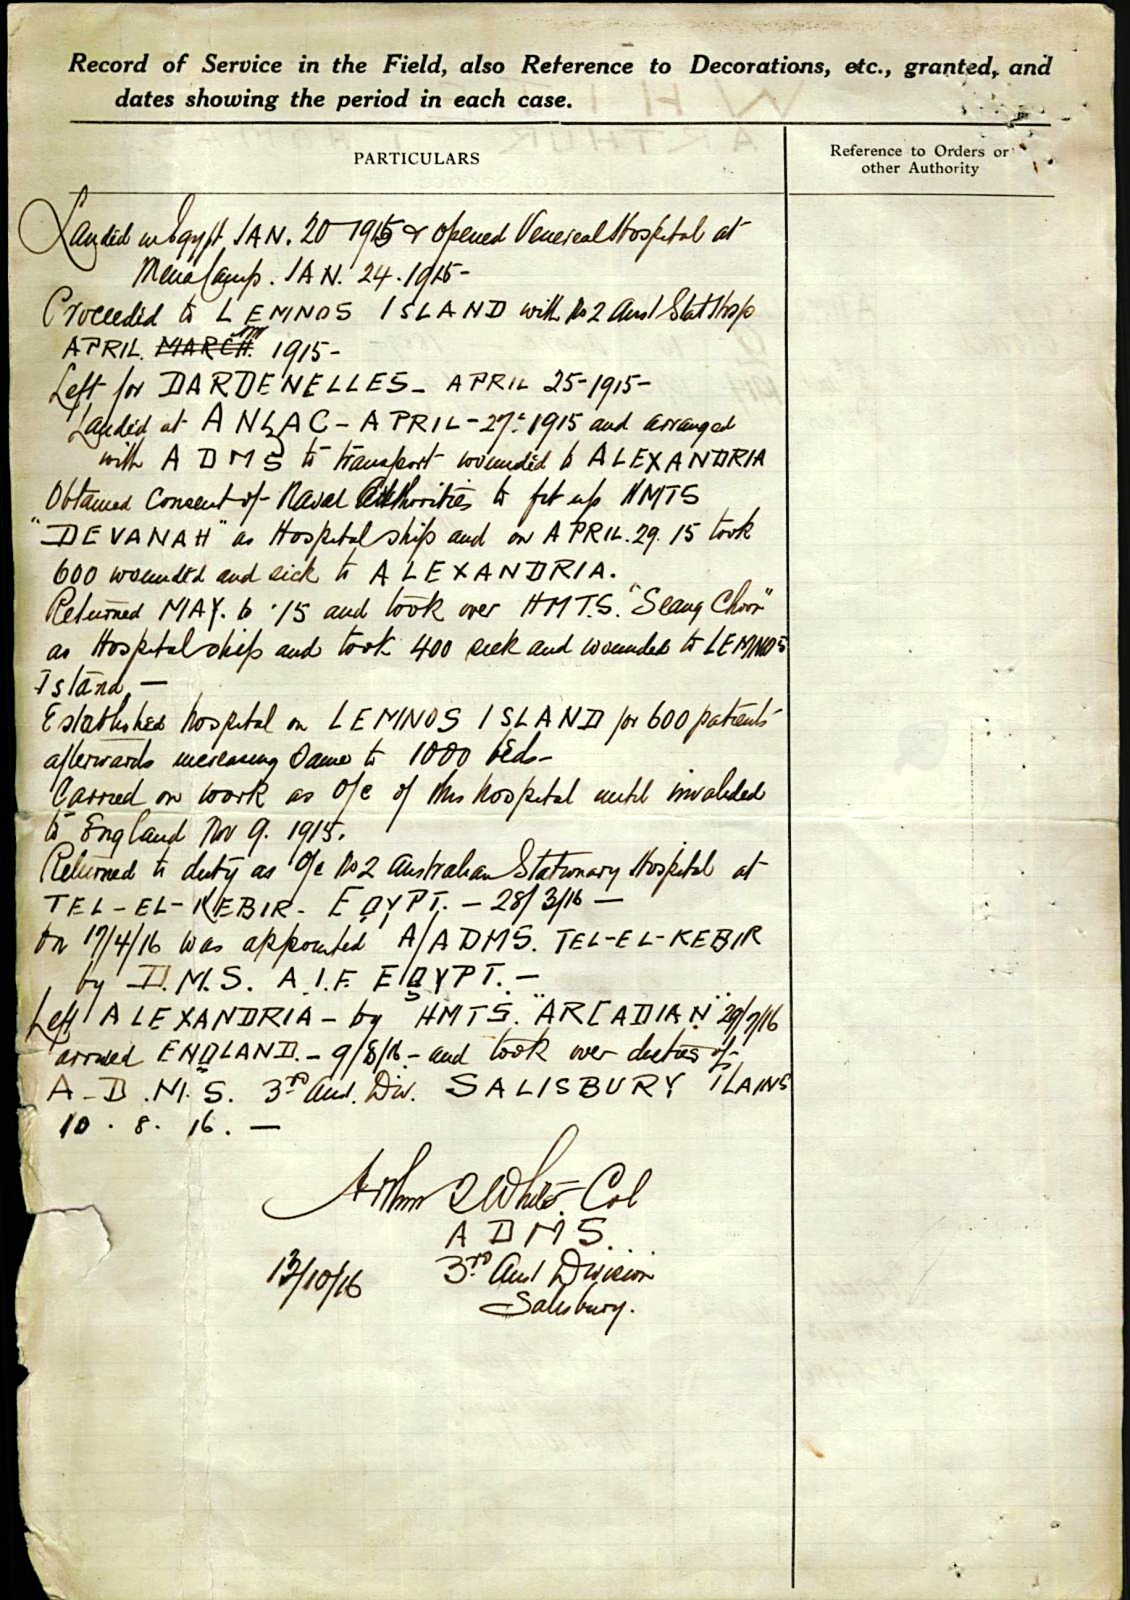 Record of Service in the Field, also Reference to Decorations, etc., granted, and
dates showing the period in each case.
PARTICULARS
Reference to Orders or
other Authority
Landed in Egypt JAN. 20 1915 & opened Venereal Hospital at
Mena Camp. JAN. 24. 1915-
Proceeded to LEMNOS ISLAND with No 2 Aust Stat Hosp
APRIL. MARCH 1915-
Left for DARDENELLES - APRIL 25-1915-
Landed at ANZAC - APRIL - 27th 1915 and arranged
with ADMS to transport wounded to ALEXANDRIA
Obtained Consent of Naval Authorities to fit up HMTS
"DEVANAH" as Hospital ship and on APRIL. 29. 15 took
600 wounded and sick to ALEXANDRIA.
Returned MAY. 6 '15 and took over HMTS. "Seang Choon"
as Hospital ship and took 400 sick and wounded to LEMNOS
Island -
Established hospital on LEMNOS ISLAND for 600 patients
afterwards increasing same to 1000 beds-
Carried on work as O/c of this hospital until invalided
to England Nov 9. 1915.
Returned to duty as O/c No 2 Australian Stationary Hospital at
TEL-EL-KEBIR - EGYPT. - 28/3/16 -
On 17/4/16 was appointed A/ADMS. TEL-EL-KEBIR
by D.M.S. A.I.F. EGYPT. -
Left ALEXANDRIA - by HMTS. "ARCADIAN" 29/7/16
arrived ENGLAND. - 9/8/16 - and took over duties of
A-D.M.S. 3rd Aust. Div. SALISBURY PLAINS
10. 8. 16. -
Arthur T White Col
ADMS.
13/10/16 3rd Aust Division
Salisbury.